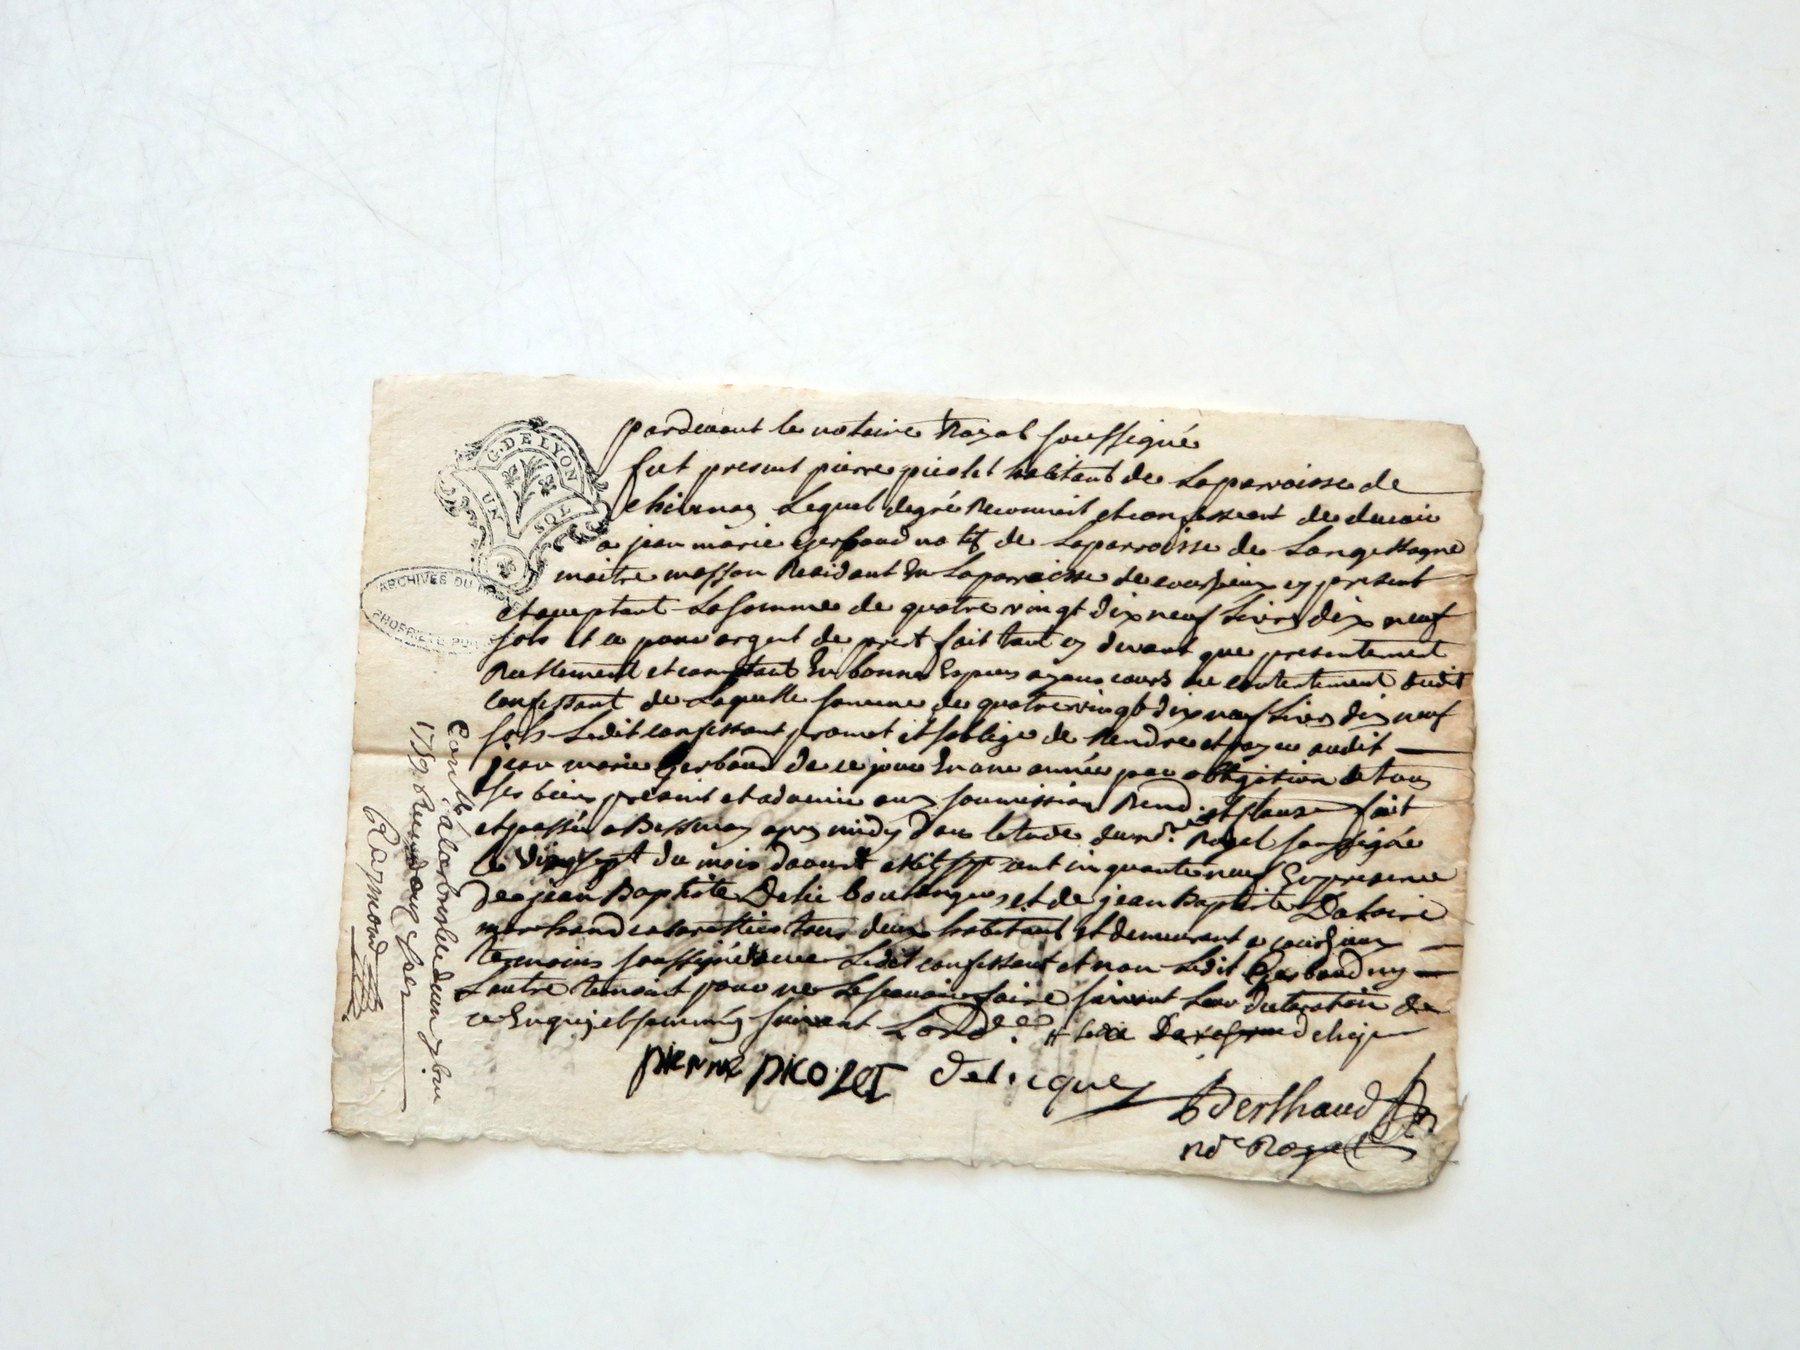 G. DE LYON
UN SOL
ARCHIVES DU
PROPRIETE PU
pardevant le notaire Royal soussigné
fut present pierre picolet habitant de Laparroisse de
Lequel degré Reconnoit et confessant de devoir
a jean marie Gerbaud natif de Laparroisse de
maitre masson Residant En Laparroisse de present
et aceptant La somme de quatre vingt dix neuf Livres dix neuf
sols et ce pour argent de pret fait tant cy devant que presentement
Reellement et comptant En bonnes Especes ayans cours au contentement dudit
confessant de Laquelle somme de quatre vingt dix neuf Livres dix neuf
sols Ledit confessant promet et soblige de Rendre et payer audit
jean marie Gerbaud de ce jour En une année par obligation de tous
ses biens presint et advenir aux soumission Rend. et clause fait
et passé a Bessenay apres midy dans letude dud. no.re Royal soussigné
le du mois daoust mil sept cent cinquante neuf En presence
de jean Baptiste Delie boulanger et de jean Baptiste
marchand cabarettier tous deux habitant et demeurant a
temoins soussigné avec Ledit confessant et non Ledit Gerbaud ny
Lautre temoint pour ne Le scavoir faire suivant Leur declaration de
ce Enquis et sommés suivant Lord.ce
PIERRE PICOLET
Berthaud
no.re Royal
Con.lé a Larbresle
1759. Reçu douze sols
Raymond